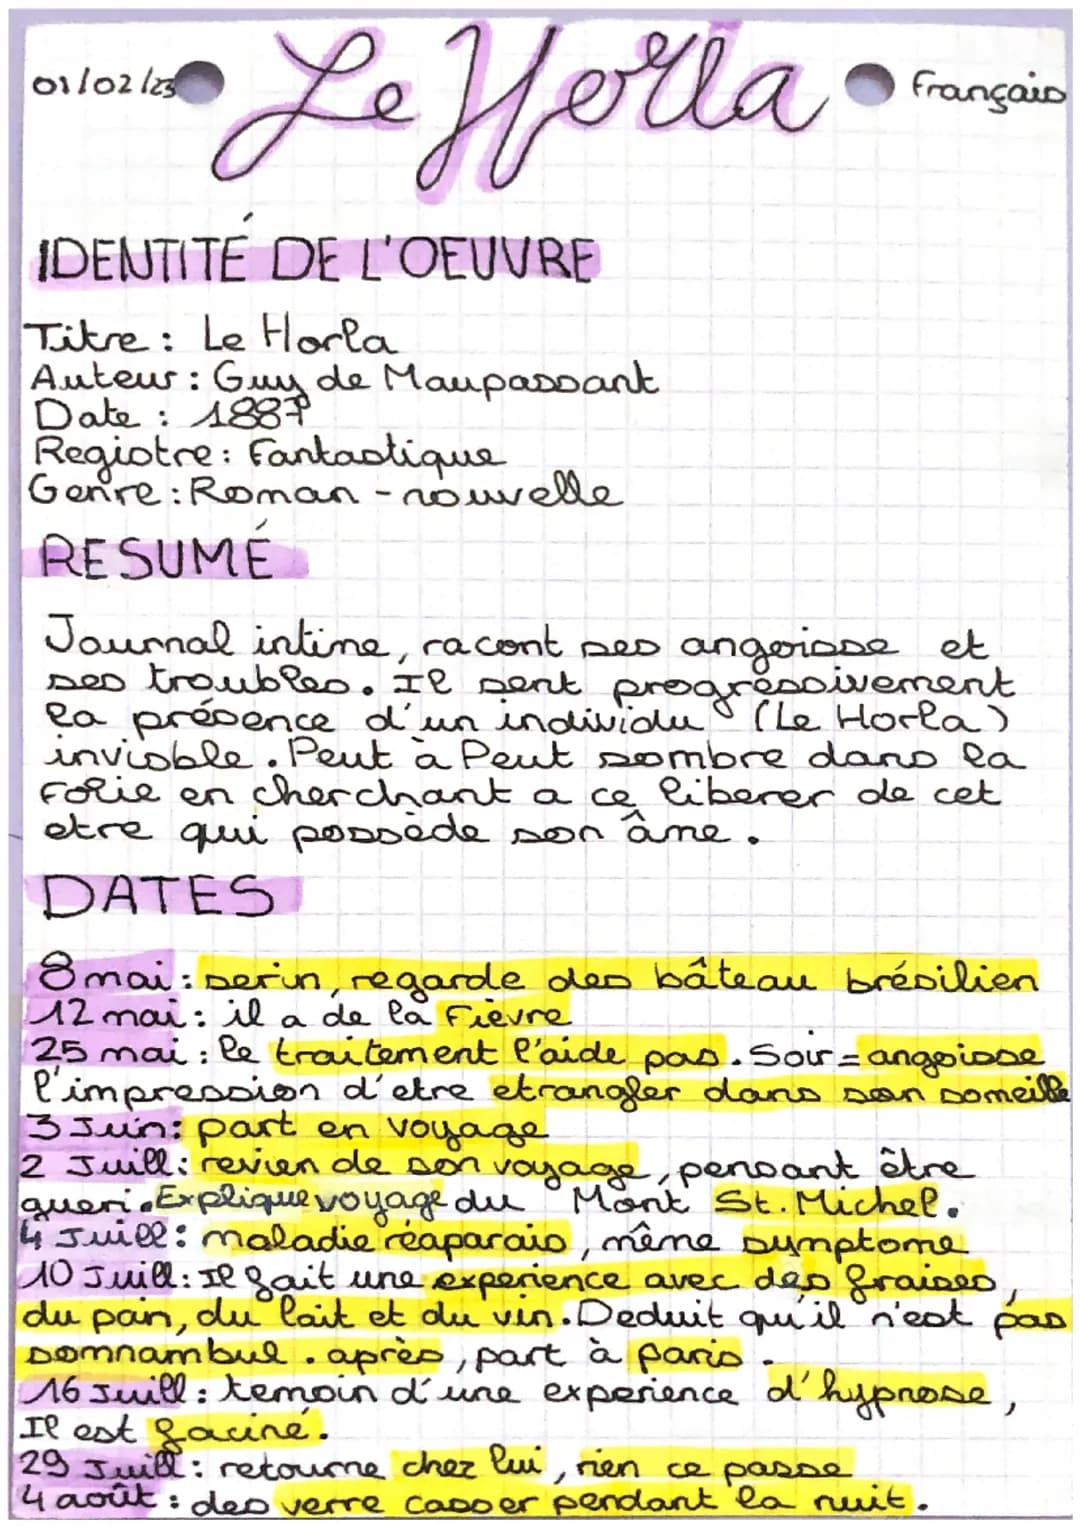 01/02/23 Le Horla Français
IDENTITÉ DE L'OEUVRE
Titre : Le Horla
Auteur : Guy de Maupassant
Date : 1887
Registre : Fantastique
Genre : Roman - nouvelle
RESUMÉ
Journal intime, racont ses angoisse et
ses troubles. Il sent progressivement
la présence d'un individu (Le Horla)
invisble. Peut à Peut sombre dans la
Folie en cherchant a ce liberer de cet
etre qui possède son âme.
DATES
8 mai : serin, regarde des bâteau brésilien
12 mai : il a de la Fièvre
25 mai : le traitement l'aide pas. Soir = angoisse
l'impression d'etre etrangler dans son someille
3 Juin : part en voyage
2 Juill : revien de son voyage, pensant être
gueri. Explique voyage du Mont St. Michel.
4 Juill : maladie réaparais, même symptome
10 Juill : Il fait une experience avec des fraises,
du pain, du lait et du vin. Deduit qu'il n'est pas
somnambul. après, part à paris.
16 Juill : temoin d'une experience d'hypnose,
Il est faciné.
29 Juill : retourne chez lui, rien ce passe
4 août : des verre casser pendant la nuit.